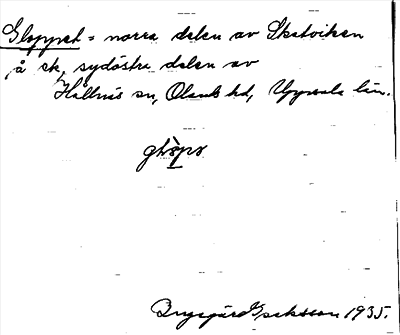 Gloppet = norra delen av Skatviken
å ek, sydöstra delen av
Hållnäs sn, Olands hd, Uppsala län.
Eriksson 1935.